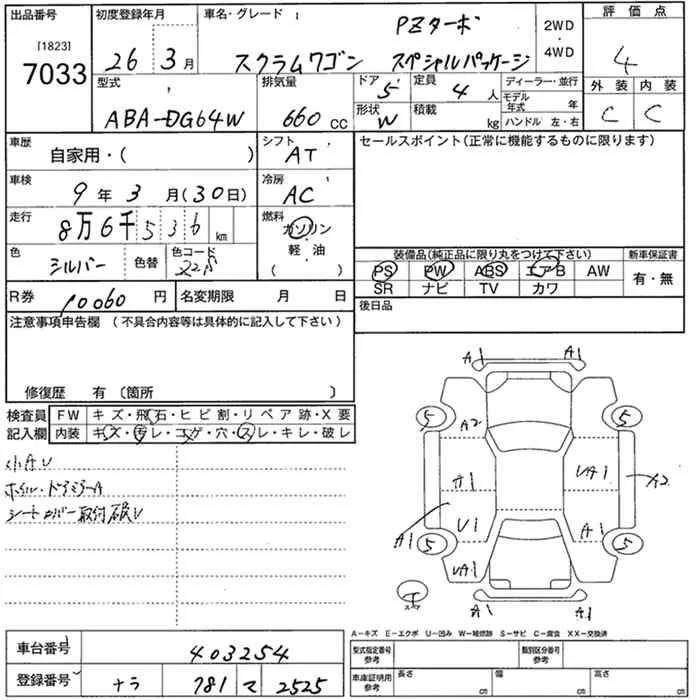 出品番号 初度登録年月 車名・グレード PZターボ 2WD・4WD 評価点
[1823]
7033 26年 3月 スクラムワゴン スペシャルパッケージ 4
型式 排気量 ドア 5 定員 4人 ディーラー・並行 外装 内装
ABA-DG64W 660cc 形状 W 積載 kg モデル年式 年 C C
ハンドル 左・右
車歴 自家用・( ) シフト AT セールスポイント(正常に機能するものに限ります)
車検 9年 3月(30日) 冷房 AC
走行 8万6千536km 燃料 ガソリン
軽・油
( )
色 シルバー 色替 色コード
装備品(純正品に限り丸をつけて下さい) 新車保証書
PS PW ABS エアB AW 有・無
SR ナビ TV カワ
R券 10060円 名変期限 月 日 後日品
注意事項申告欄(不具合内容等は具体的に記入して下さい)
修復歴 有〔箇所 〕
検査員 FW キズ・飛石・ヒビ割・リペア跡・X要
記入欄 内装 キズ・汚レ・コゲ・穴・スレ・キレ・破レ
小キズU
ホイル・ドアミラーA
シートカバー取付破レ
A1 A1
5 A2 5
A1 UA1 A2
A1 U1 A1
5 UA1 5
A1 A1
A-キズ E-エクボ U-凹み W-補修跡 S-サビ C-腐食 XX-交換済
車台番号 403254 型式指定番号参考 類別区分番号参考
登録番号 ナラ 781 マ 2525 車庫証明用参考 長さ cm 幅 cm 高さ cm